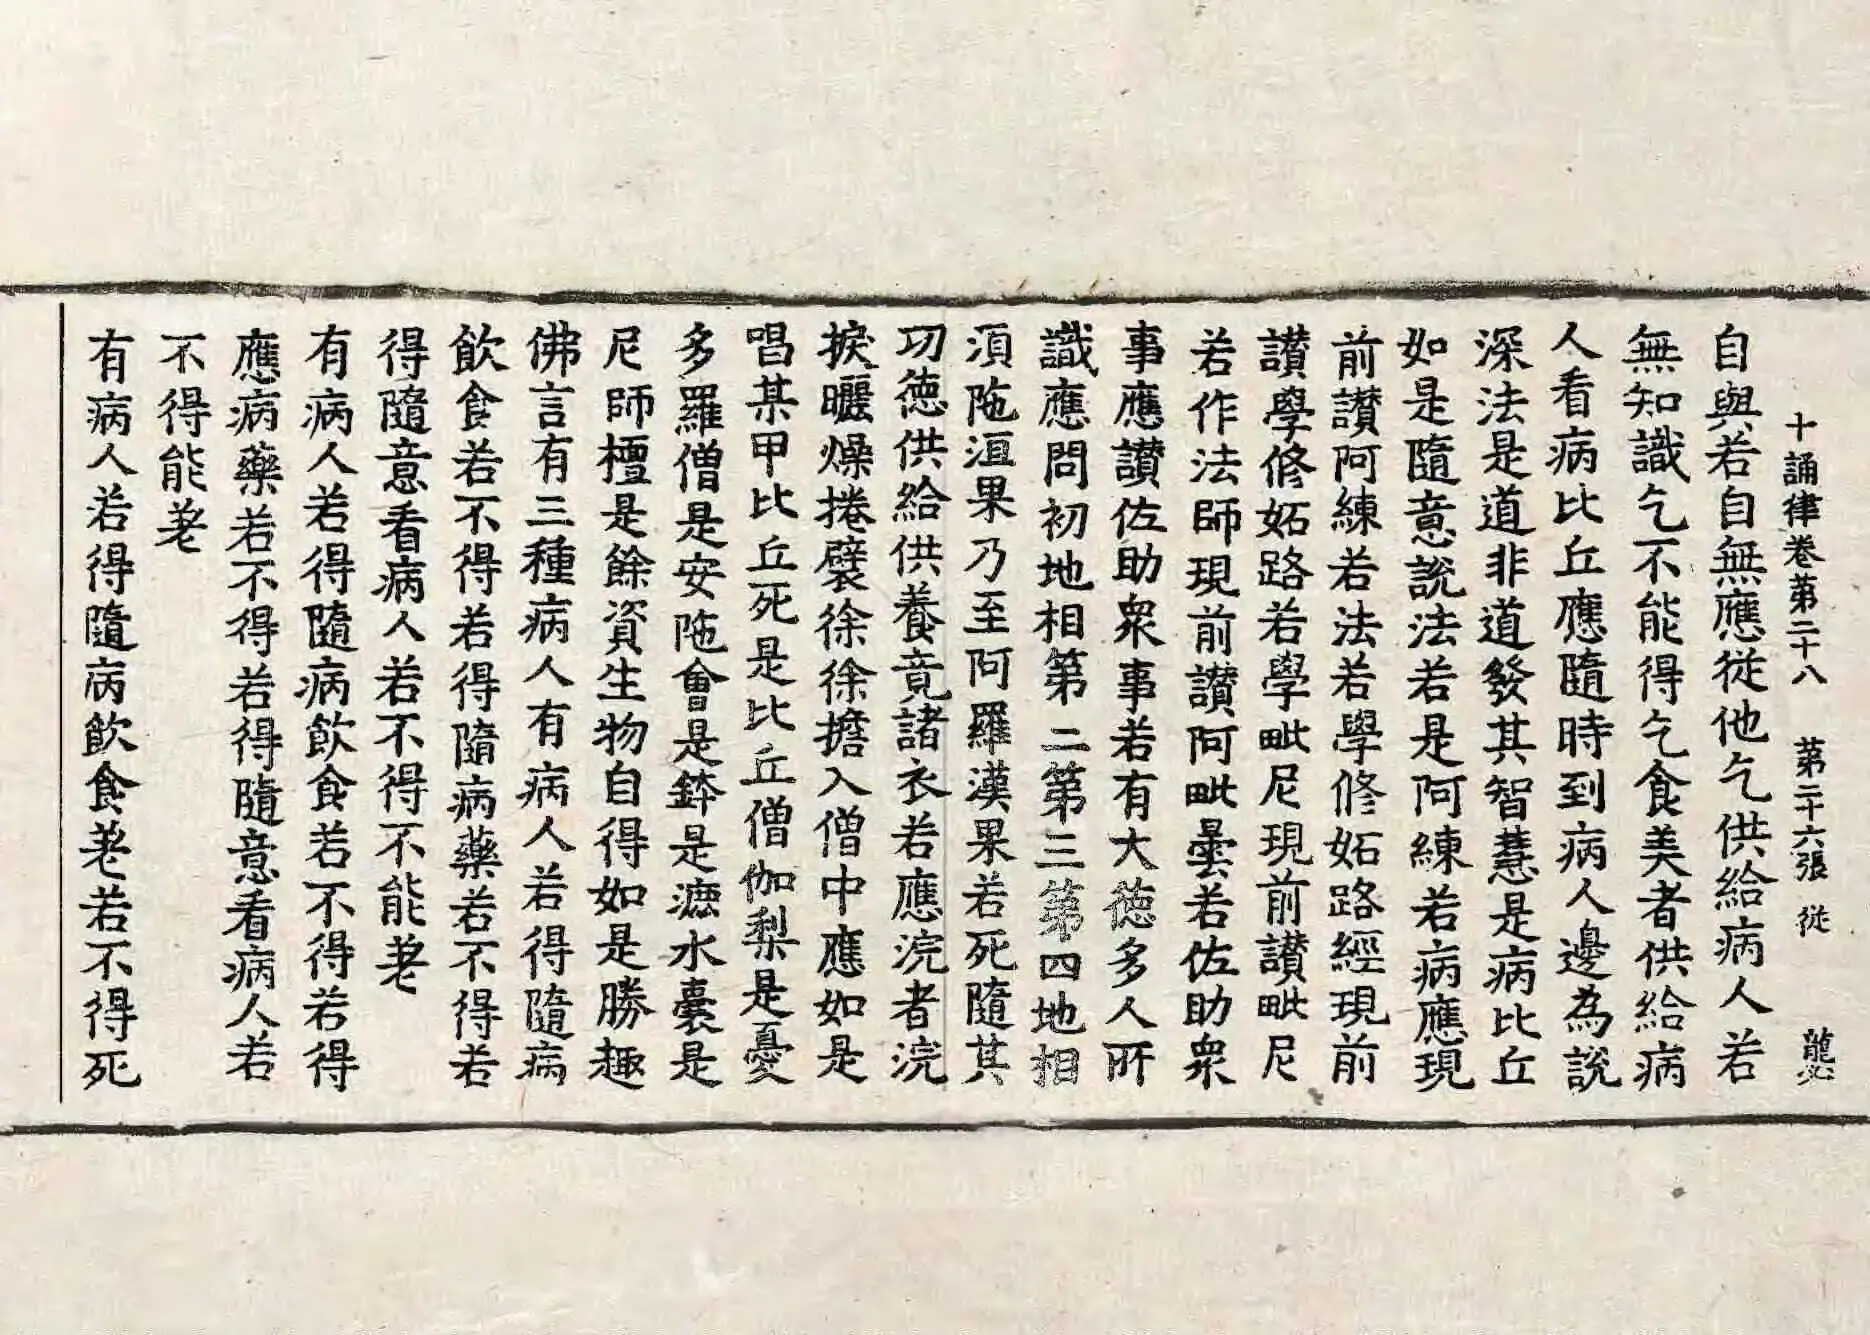 十誦律卷第二十八 第二十六張 從
自與若自無應從他乞供給病人若
無知識乞不能得乞食美者供給病
人看病比丘應隨時到病人邊為說
深法是道非道發其智慧是病比丘
如是隨意說法若是阿練若病應現
前讃阿練若法若學修妬路經現前
讃學修妬路若學毗尼現前讃毗尼
若作法師現前讃阿毗曇若佐助衆
事應讃佐助衆事若有大德多人所
識應問初地相第二第三第四地相
湏陁洹果乃至阿羅漢果若死隨其
功德供給供養竟諸衣若應浣者浣
捩曬燥捲襞徐徐擔入僧中應如是
唱某甲比丘死是比丘僧伽梨是憂
多羅僧是安陁會是鉢是漉水囊是
尼師檀是餘資生物自得如是勝趣
佛言有三種病人有病人若得隨病
飲食若不得若得隨病藥若不得若
得隨意看病人若不得不能差
有病人若得隨病飲食若不得若得
應病藥若不得若得隨意看病人若
不得能差
有病人若得隨病飲食差若不得死